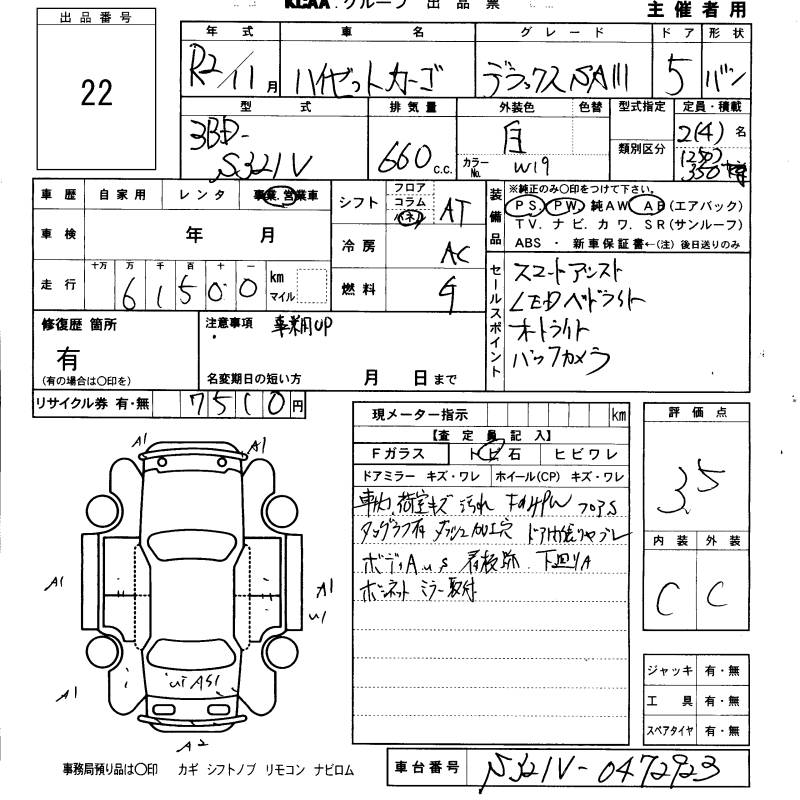 KCAA グループ 出品票 主催者用
出品番号
22
年式 車名 グレード ドア 形状
R2/11月 ハイゼットカーゴ デラックスSAIII 5 バン
型式 排気量 外装色 色替 型式指定 定員・積載
3BD- S321V 660 c.c. 白 カラーNo. W19 類別区分 2(4)名
350
車歴 自家用 レンタ 事業・営業車
シフト フロア コラム AT
装備品 ※純正のみ〇印をつけて下さい。
PS. PW. 純AW. AB(エアバック)
TV. ナビ. カワ. SR(サンルーフ)
ABS ・ 新車保証書←(注)後日送りのみ
車検 年 月
冷房 AC
走行 十万 万 千 百 十 一
61500 km マイル
燃料 G
セールスポイント
スマートアシスト
LEDヘッドライト
オートライト
バックカメラ
修復歴 箇所
有
(有の場合は〇印を)
注意事項 事業用UP
名変期日の短い方 月 日まで
リサイクル券 有・無 7510円
現メーター指示 km
【査定員記入】
Fガラス トビ石 ヒビワレ
ドアミラー キズ・ワレ ホイール(CP) キズ・ワレ
車内、荷室キズ 汚れ フロアS
タッグラフ有 ダッシュ加工穴 ドア内張りヤブレ
ボディAUS 看板跡 下回りA
ボンネット ミラー取付
評価点
3.5
内装 外装
C C
A1 A1
A1 A1
U1
A1 A1
A2
ジャッキ 有・無
工具 有・無
スペアタイヤ 有・無
事務局預り品は〇印 カギ シフトノブ リモコン ナビロム
車台番号 S321V-0472923